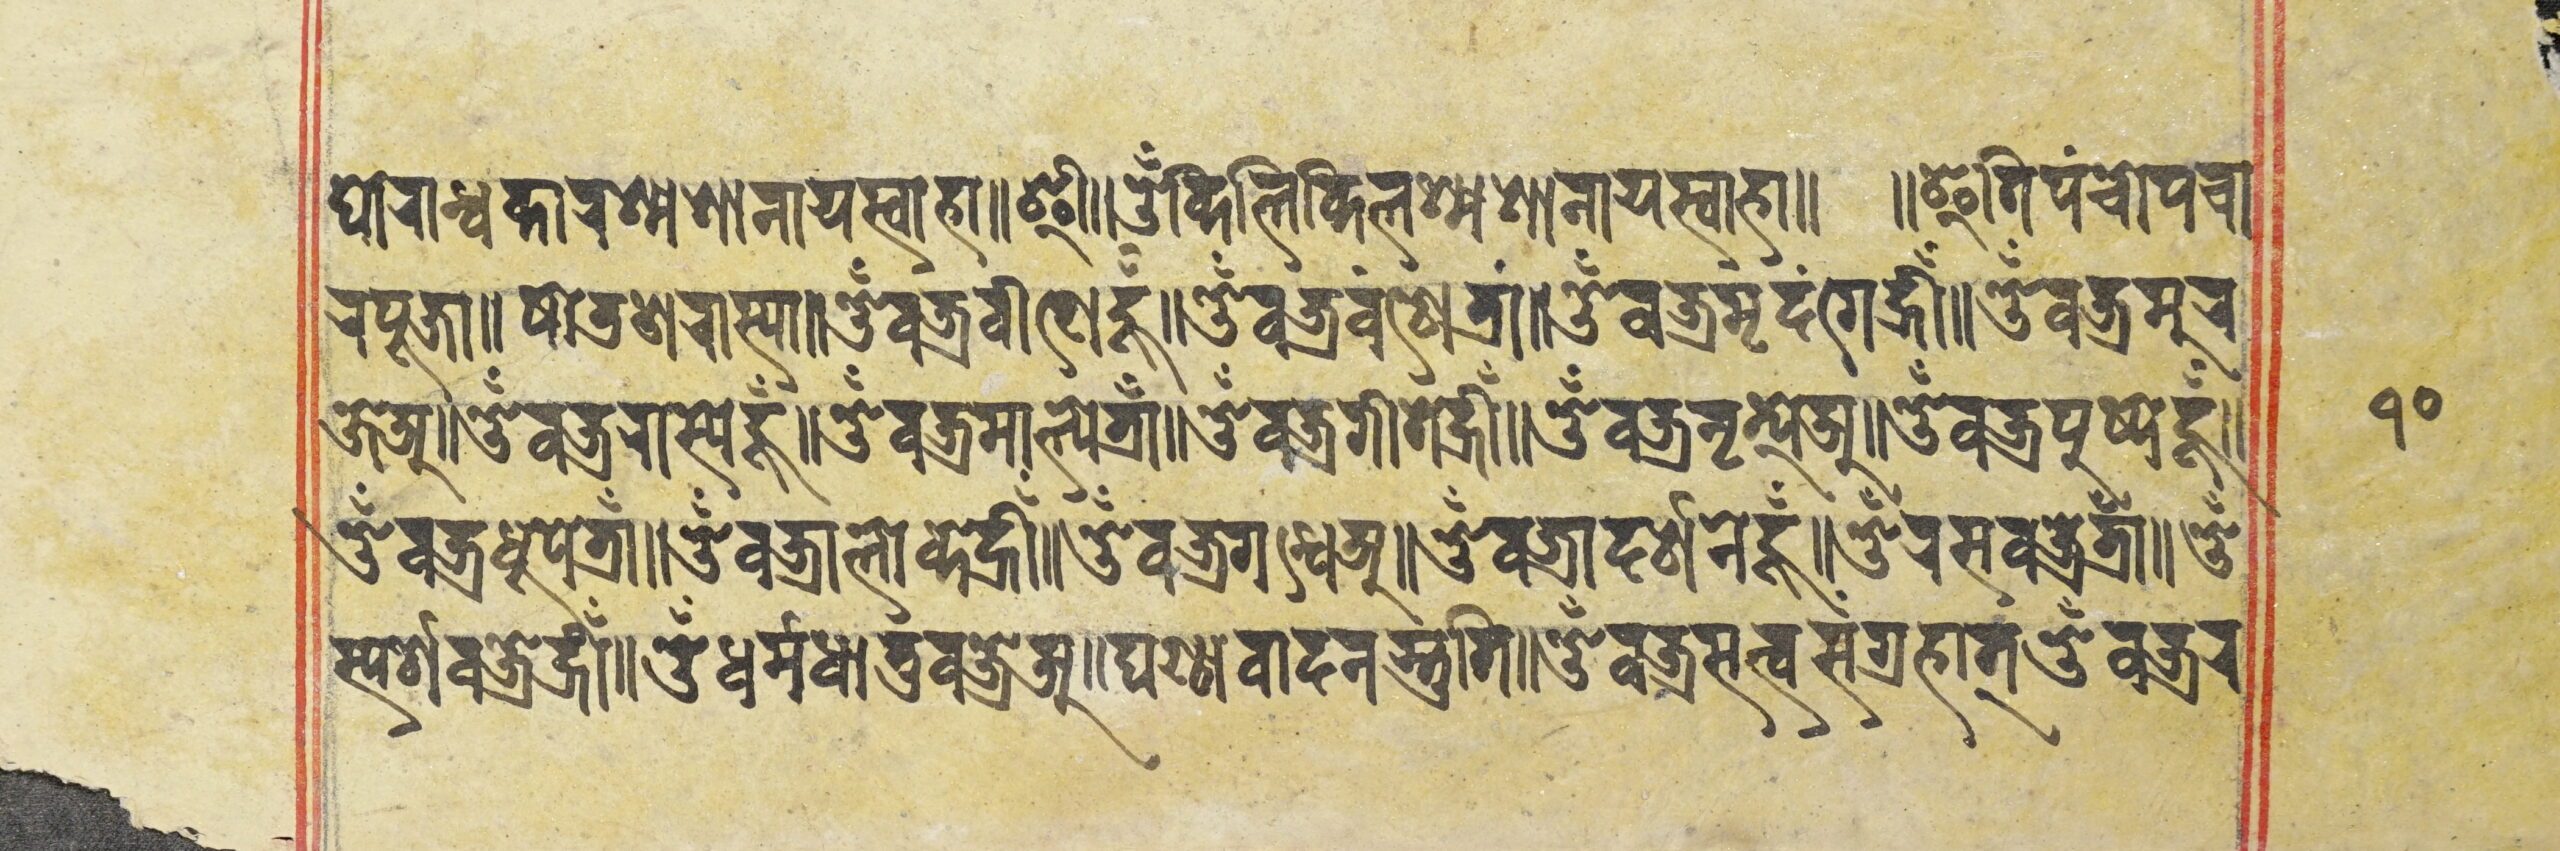 घोरान्धकारश्मशानायस्वाहा॥ई॥ॐकिलिकिलश्मशानायस्वाहा॥ ॥इतिपंचोपचा
रपूजा॥षोतशरास्या॥ॐवज्रवीणेहूँ॥ॐवंज्रवंशेत्रां॥ॐवज्रमृदंगेह्रीँ॥ॐवज्रमुर
जेअः॥ॐवज्ररास्येहूँ॥ॐवज्रमाल्येत्राँ॥ॐवज्रगीतेह्रीँ॥ॐवज्रनृत्येअः॥ॐवज्रपुष्पेहूँ॥
ॐवज्रधूपेत्राँ॥ॐवज्रालोकेह्रीँ॥ॐवज्रगन्धेअः॥ॐवज्रादर्शनेहूँ॥ॐरसवज्रेत्राँ॥ॐ
स्पर्शवज्रेह्रीँ॥ॐधर्मधातुवज्रेअः॥घण्ठावादनस्तुति॥ॐवज्रसत्वसंग्रहात्ॐवज्रर
१०